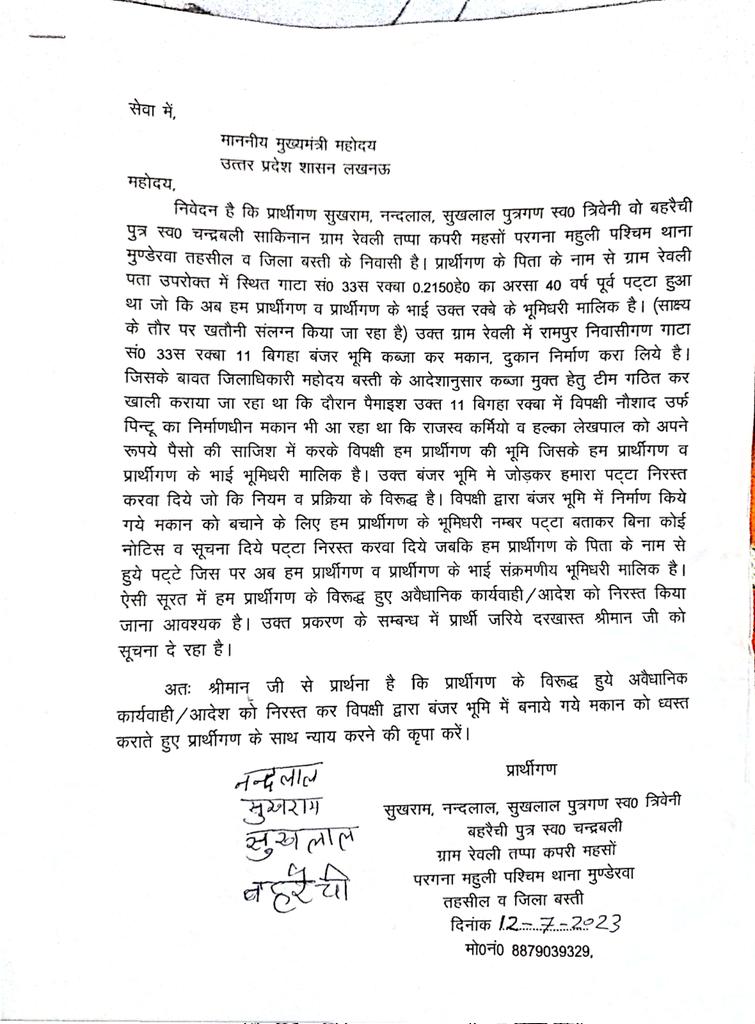 सेवा में,
माननीय मुख्यमंत्री महोदय
उत्तर प्रदेश शासन लखनऊ
महोदय,
निवेदन है कि प्रार्थीगण सुखराम, नन्दलाल, सुखलाल पुत्रगण स्व0 त्रिवेनी वो बहरैची
पुत्र स्व0 चन्द्रबली साकिनान ग्राम रेवली तप्पा कपरी महसों परगना महुली पश्चिम थाना
मुण्डेरवा तहसील व जिला बस्ती के निवासी है। प्रार्थीगण के पिता के नाम से ग्राम रेवली
पता उपरोक्त में स्थित गाटा सं0 33स रक्बा 0.2150हे0 का अरसा 40 वर्ष पूर्व पट्टा हुआ
था जो कि अब हम प्रार्थीगण व प्रार्थीगण के भाई उक्त रक्बे के भूमिधरी मालिक है। (साक्ष्य
के तौर पर खतौनी संलग्न किया जा रहा है) उक्त ग्राम रेवली में रामपुर निवासीगण गाटा
सं0 33स रक्बा 11 बिगहा बंजर भूमि कब्जा कर मकान, दुकान निर्माण करा लिये है।
जिसके बावत जिलाधिकारी महोदय बस्ती के आदेशानुसार कब्जा मुक्त हेतु टीम गठित कर
खाली कराया जा रहा था कि दौरान पैमाइश उक्त 11 बिगहा रक्बा में विपक्षी नौशाद उर्फ
पिन्टू का निर्माणधीन मकान भी आ रहा था कि राजस्व कर्मियो व हल्का लेखपाल को अपने
रूपये पैसो की साजिश में करके विपक्षी हम प्रार्थीगण की भूमि जिसके हम प्रार्थीगण व
प्रार्थीगण के भाई भूमिधरी मालिक है। उक्त बंजर भूमि मे जोड़कर हमारा पट्टा निरस्त
करवा दिये जो कि नियम व प्रक्रिया के विरूद्ध है। विपक्षी द्वारा बंजर भूमि में निर्माण किये
गये मकान को बचाने के लिए हम प्रार्थीगण के भूमिधरी नम्बर पट्टा बताकर बिना कोई
नोटिस व सूचना दिये पट्टा निरस्त करवा दिये जबकि हम प्रार्थीगण के पिता के नाम से
हुये पट्टे जिस पर अब हम प्रार्थीगण व प्रार्थीगण के भाई संक्रमणीय भूमिधरी मालिक है।
ऐसी सूरत में हम प्रार्थीगण के विरूद्ध हुए अवैधानिक कार्यवाही/आदेश को निरस्त किया
जाना आवश्यक है। उक्त प्रकरण के सम्बन्ध में प्रार्थी जरिये दरखास्त श्रीमान जी को
सूचना दे रहा है।
अतः श्रीमान् जी से प्रार्थना है कि प्रार्थीगण के विरूद्ध हुये अवैधानिक
कार्यवाही/आदेश को निरस्त कर विपक्षी द्वारा बंजर भूमि में बनाये गये मकान को ध्वस्त
कराते हुए प्रार्थीगण के साथ न्याय करने की कृपा करें।
नन्दलाल
सुखराम
सुखलाल
बहरैची
प्रार्थीगण
सुखराम, नन्दलाल, सुखलाल पुत्रगण स्व0 त्रिवेनी
बहरैची पुत्र स्व0 चन्द्रबली
ग्राम रेवली तप्पा कपरी महसों
परगना महुली पश्चिम थाना मुण्डेरवा
तहसील व जिला बस्ती
दिनांक 12-7-2023
मो0नं0 8879039329,